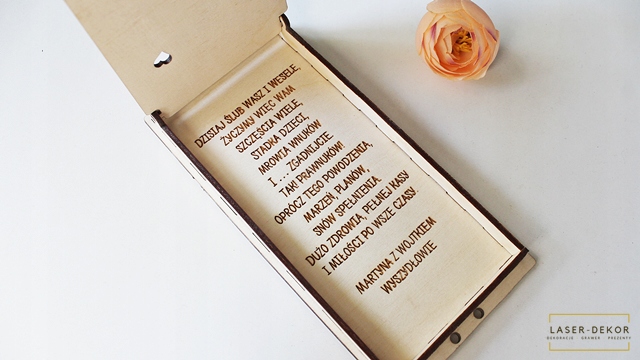 DZISIAJ ŚLUB WASZ I WESELE,
ŻYCZYMY WIĘC WAM
SZCZĘŚCIA WIELE,
STADKA DZIECI,
MROWIA WNUKÓW
I ... ZGADNIJCIE
TAK! PRAWNUKÓW!
OPRÓCZ TEGO POWODZENIA,
MARZEŃ PLANÓW,
SNÓW SPEŁNIENIA.
DUŻO ZDROWIA, PEŁNEJ KASY
I MIŁOŚCI PO WSZE CZASY.
MARTYNA Z WOJTKIEM
WYSZYDŁOWIE
LASER-DEKOR
DEKORACJE GRAWER PREZENTY